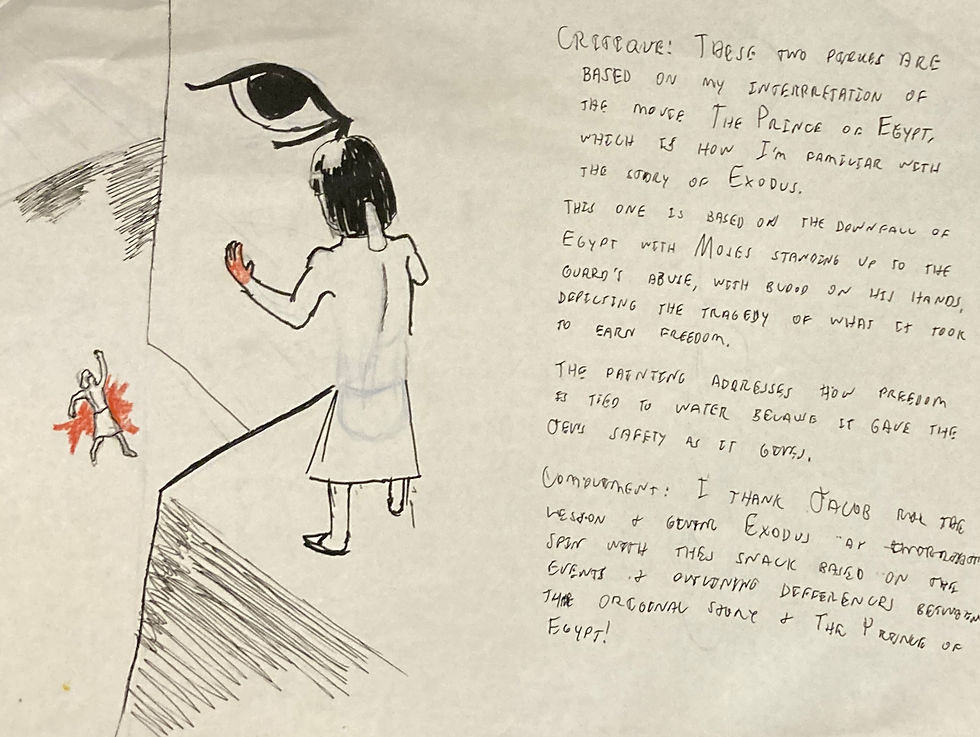 CRITIQUE: THESE TWO PIECES ARE
BASED ON MY INTERPRETATION OF
THE MOVIE THE PRINCE OF EGYPT,
WHICH IS HOW I'M FAMILIAR WITH
THE STORY OF EXODUS.
THIS ONE IS BASED ON THE DOWNFALL OF
EGYPT WITH MOSES STANDING UP TO THE
GUARD'S ABUSE, WITH BLOOD ON HIS HANDS,
DEPICTING THE TRAGEDY OF WHAT IT TOOK
TO EARN FREEDOM.
THE PAINTING ADDRESSES HOW FREEDOM
IS TIED TO WATER BECAUSE IT GAVE THE
JEWS SAFETY AS IT GIVES.
COMPLIMENT: I THANK JACOB FOR THE
LESSON & GIVING EXODUS AN
SPIN WITH THIS SNACK BASED ON THE
EVENTS & OUTLINING DIFFERENCES BETWEEN
THE ORIGINAL STORY & THE PRINCE OF
EGYPT!